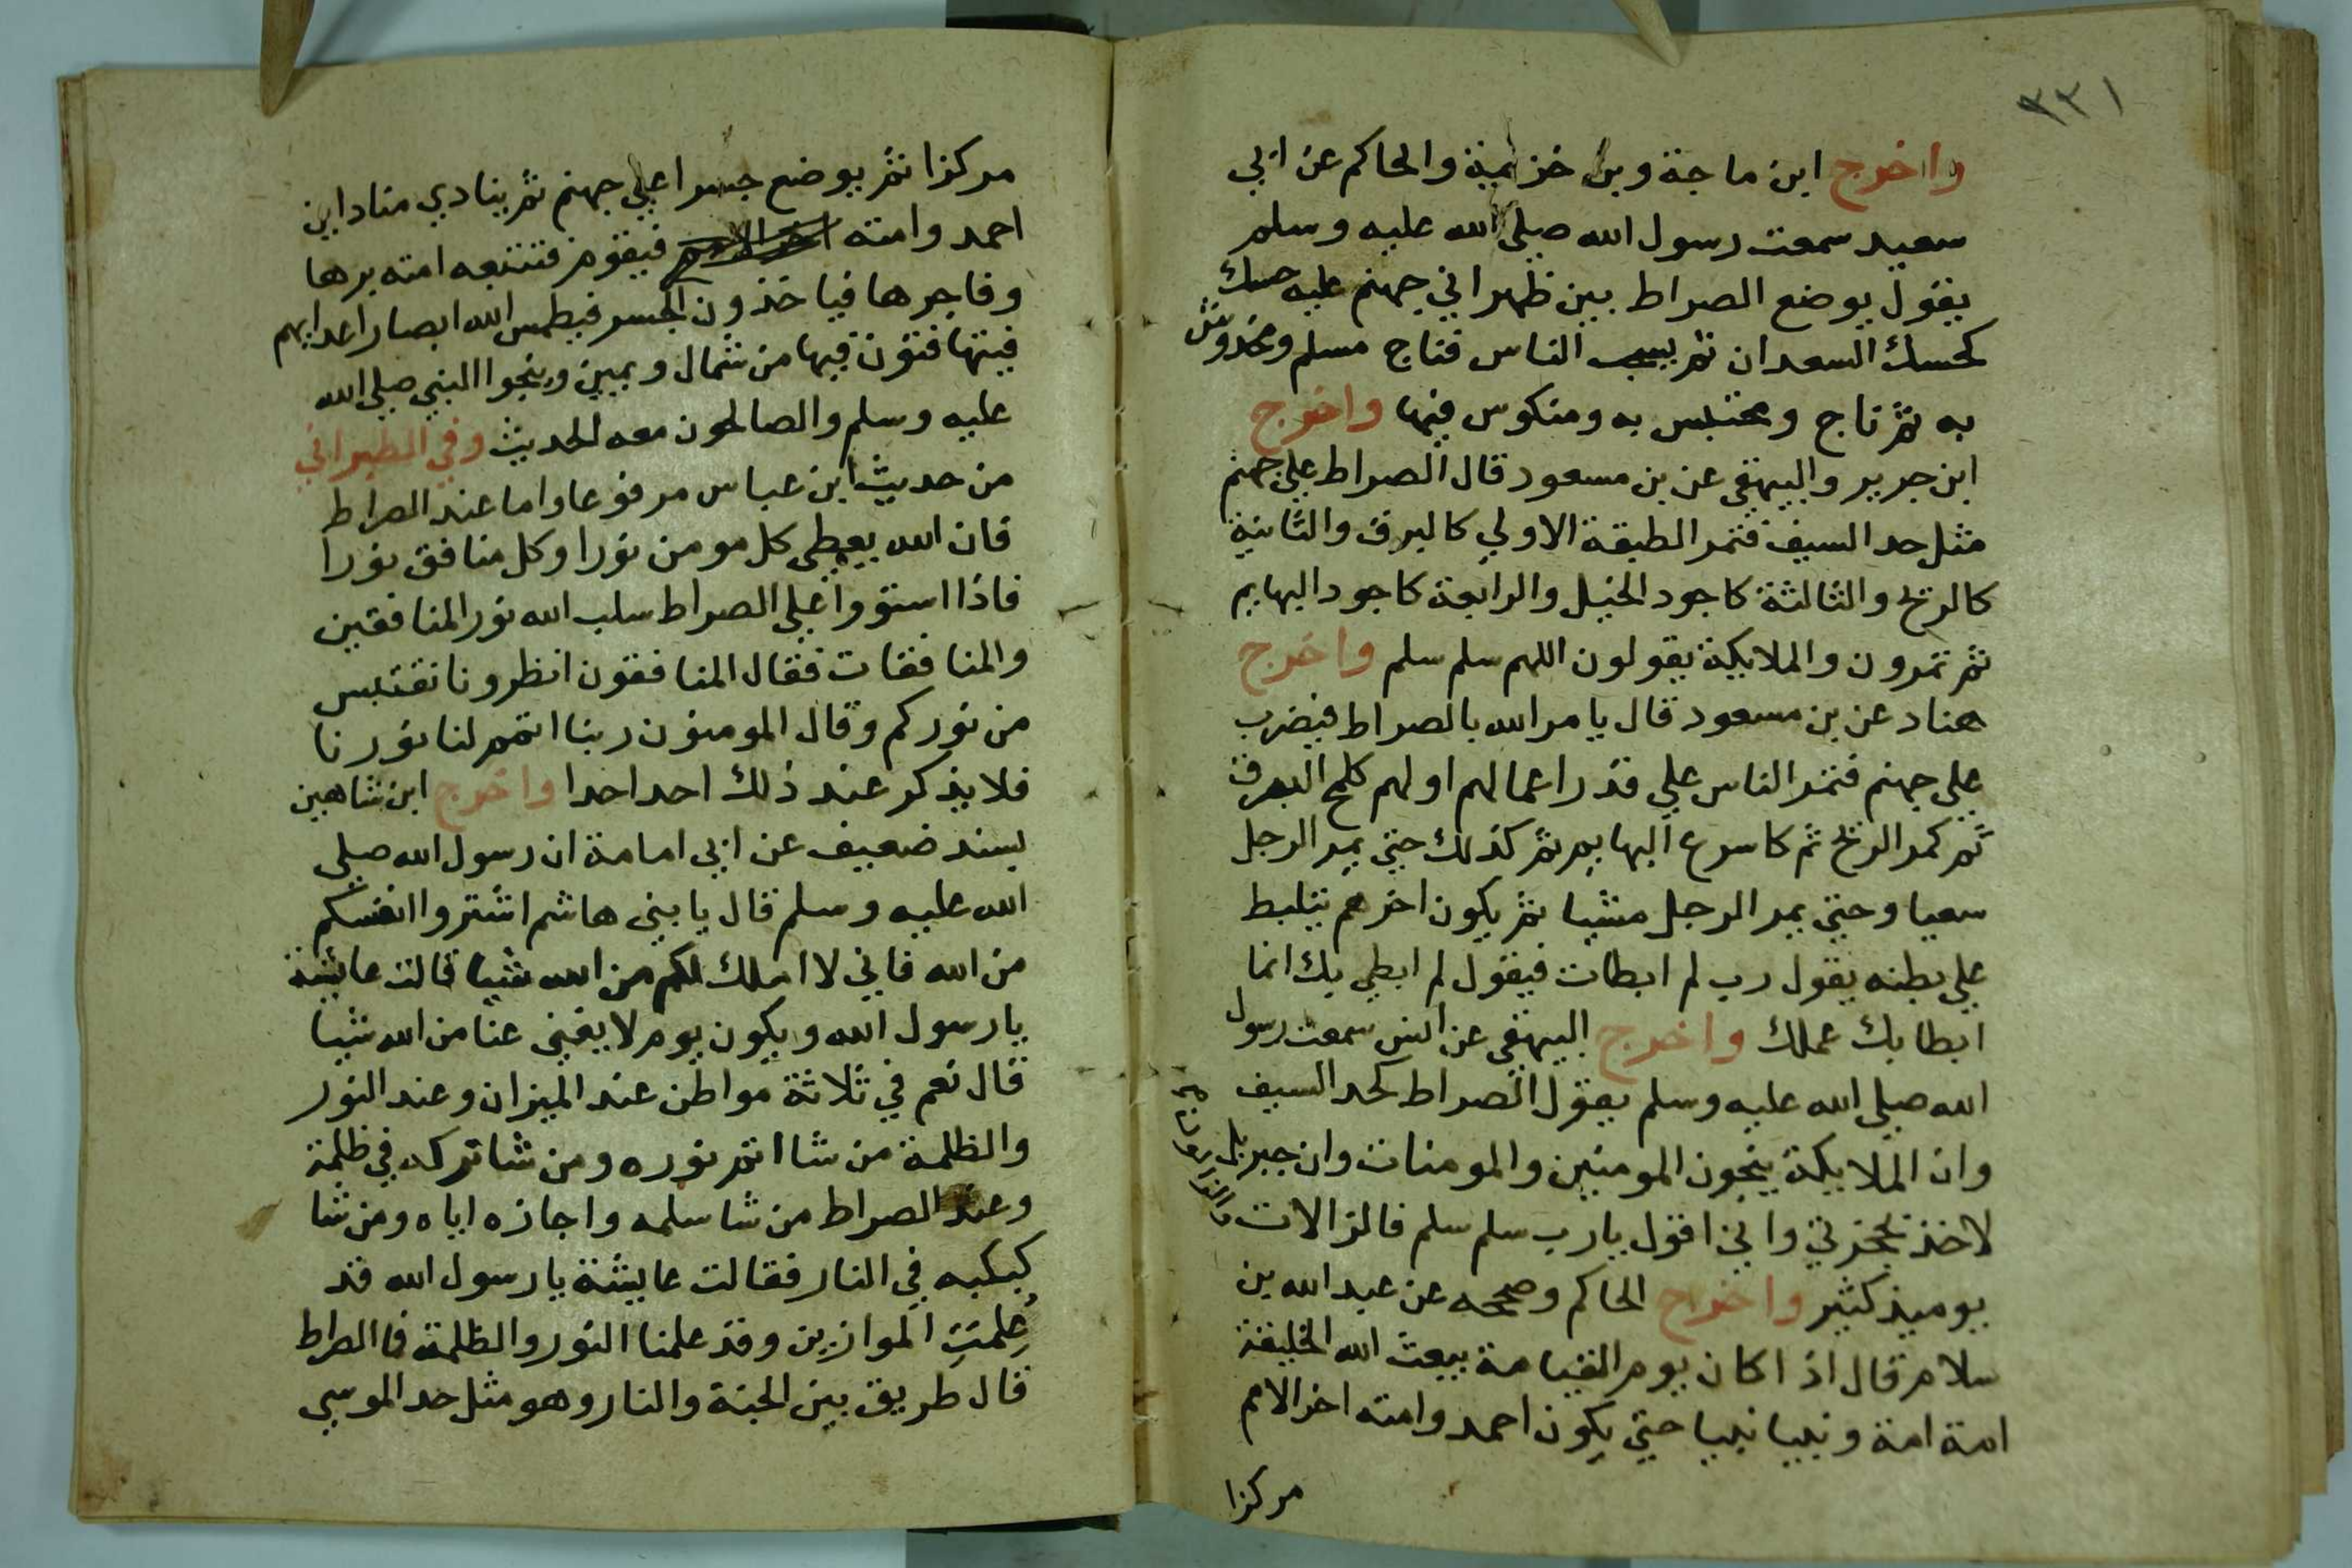 ٣٣١
واخرج ابن ماجة وبن خزيمة والحاكم عن ابي
سعيد سمعت رسول الله صلي الله عليه وسلم
يقول يوضع الصراط بين ظهراني جهنم عليه حسك
كحسك السعدان ثم الناس فناج مسلم ومخدوش
به ثم ناج ومحتبس به ومنكوس فيها واخرج
ابن جرير والبيهقي عن بن مسعود قال الصراط علي جهنم
مثل حد السيف فتمر الطبقة الاولي كالبرق والثانية
كالريح والثالثة كاجود الخيل والرابعة كاجود البهايم
ثم تمرون والملايكة يقولون اللهم سلم سلم واخرج
هناد عن بن مسعود قال يامر الله بالصراط فيضرب
علي جهنم فتمر الناس علي قدر اعمالهم اولهم كلمح البرق
ثم كمر الريح ثم كاسرع البهايم ثم كذلك حتي يمر الرجل
سعيا وحتي يمر الرجل مشيا ثم يكون اخرهم يتلبط
علي بطنه يقول رب لم ابطات فيقول لم ابطي بك انما
ابطا بك عملك واخرج البيهقي عن انس سمعت رسول
الله صلي الله عليه وسلم يقول الصراط كحد السيف
وان الملايكة ينجون المومنين والمومنات وان جبريل
لاخذ بحجزتي واني اقول يارب سلم سلم فالزالات والزالون
يوميذ كثير واخرج الحاكم وصححه عن عبد الله بن
سلام قال اذا كان يوم القيامة يبعث الله الخليقة
امة امة ونبيا نبيا حتي يكون احمد وامته اخر الامم
مركزا
مركزا ثم يوضع جسرا علي جهنم ثم ينادي مناد اين
احمد وامته اخر الامم فيقوم فتتبعه امته برها
وفاجرها فياخذون الجسر فيطمس الله ابصار اعدايهم
فيتهافتون فيها من شمال ويمين وينجوا النبي صلي الله
عليه وسلم والصالحون معه الحديث وفي الطبراني
من حديث ابن عباس مرفوعا واما عند الصراط
فان الله يعطي كل مومن نورا وكل منافق نورا
فاذا استووا علي الصراط سلب الله نور المنافقين
والمنافقات فقال المنافقون انظرونا نقتبس
من نوركم وقال المومنون ربنا اتمم لنا نورنا
فلا يذكر عند ذلك احد احدا واخرج ابن شاهين
بسند ضعيف عن ابي امامة ان رسول الله صلي
الله عليه وسلم قال يا بني هاشم اشتروا انفسكم
من الله فاني لا املك لكم من الله شيا قالت عايشة
يا رسول الله ويكون يوم لا يغني عنا من الله شيا
قال نعم في ثلاثة مواطن عند الميزان وعند النور
والظلمة من شا اتم نوره ومن شا تركه في ظلمة
وعند الصراط من شا سلمه واجازه اياه ومن شا
كبكبه في النار فقالت عايشة يا رسول الله قد
عِلمتِ الموازين وقد علمنا النور والظلمة فاالصراط
قال طريق بين الجنة والنار وهو مثل حد الموسي